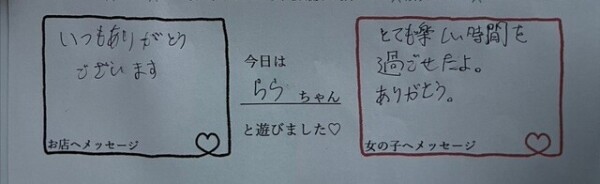 いつもありがとう
ございます
お店へメッセージ
今日は
らら ちゃん
と遊びました♡
とても楽しい時間を
過ごせたよ。
ありがとう。
女の子へメッセージ